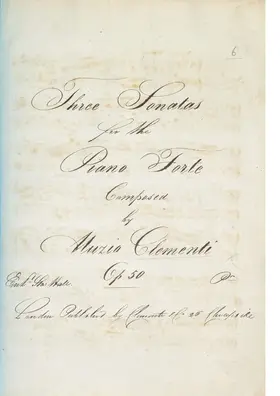 6
Three Sonatas
for the
Piano Forte
Composed
by
Muzio Clementi
Op 50
Ent.d Sta. Hall.
London Published by Clementi & Co 26 Cheapside